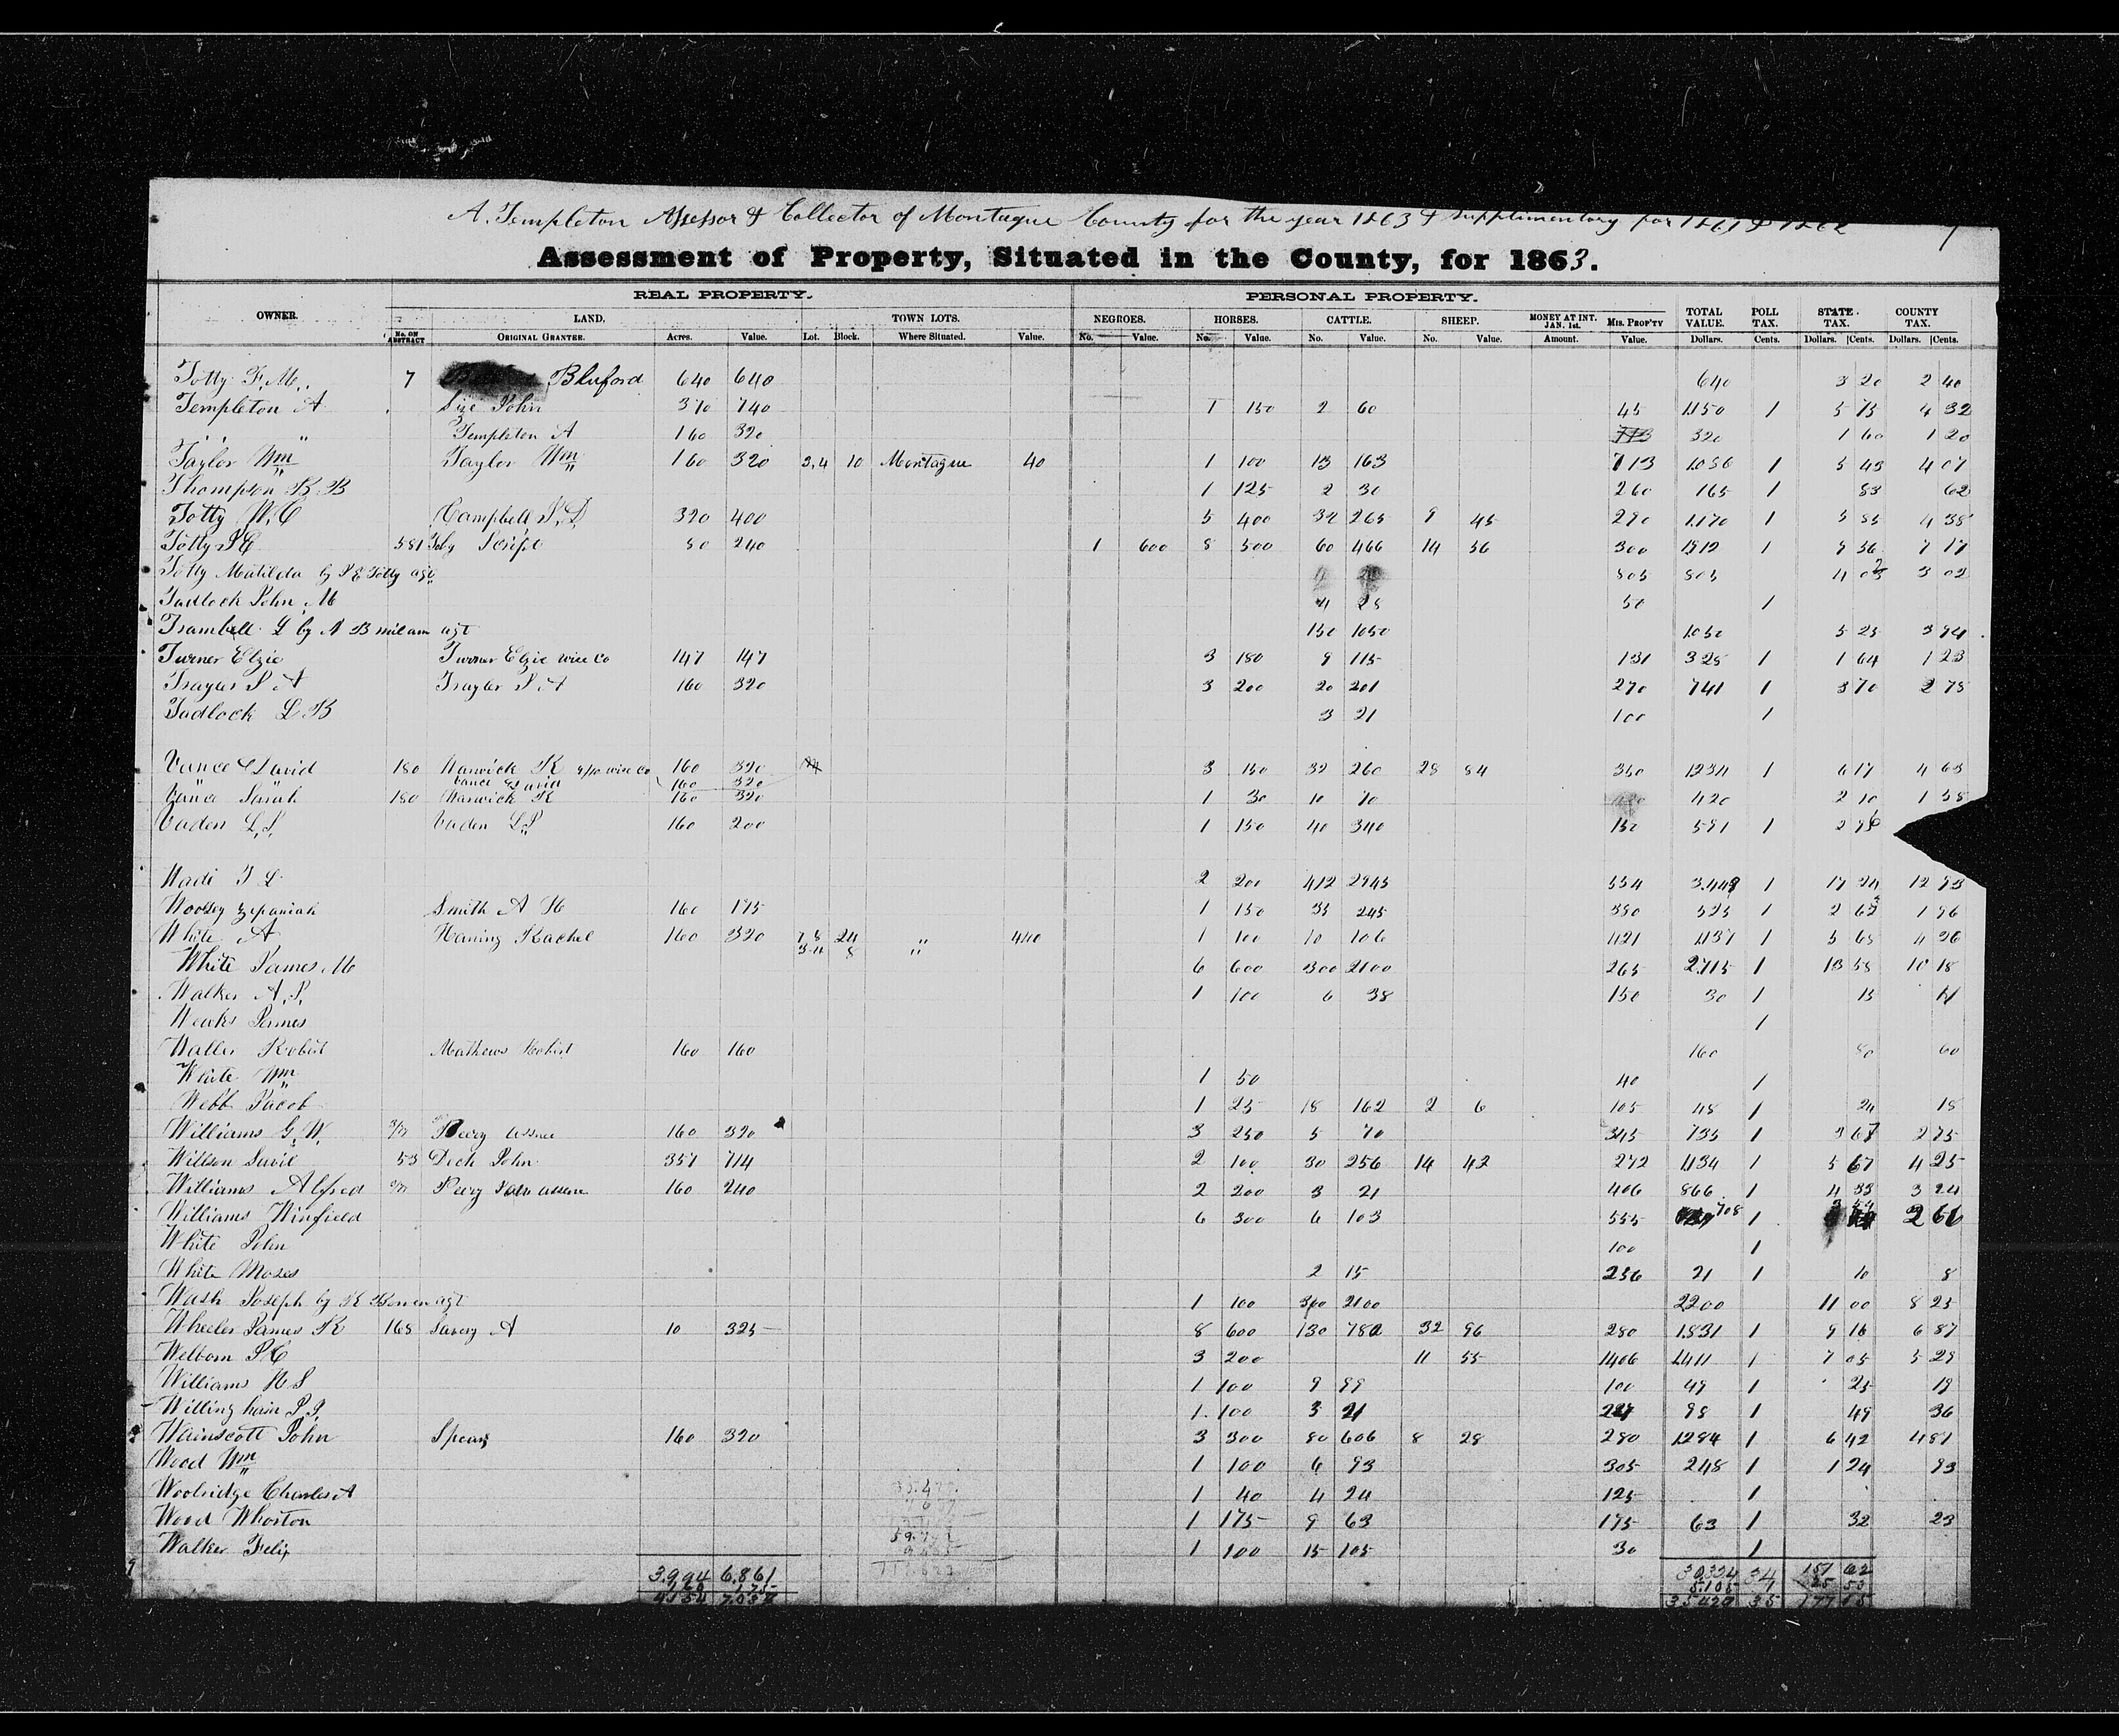 A. Templeton Assessor & Collector of Montague County for the year 1863 & Supplimentary for 1861 & 1862
Assessment of Property, Situated in the County, for 1863.
REAL PROPERTY. PERSONAL PROPERTY.
OWNER. LAND. TOWN LOTS. NEGROES. HORSES. CATTLE. SHEEP. MONEY AT INT. JAN. 1st. MIS. PROP'TY TOTAL VALUE. POLL TAX. STATE TAX. COUNTY TAX.
No. ON ABSTRACT ORIGINAL GRANTER. Acres. Value. Lot. Block. Where Situated. Value. No. Value. No. Value. No. Value. No. Value. Amount. Value. Dollars. Cents. Dollars. Cents. Dollars. Cents.
Totty F. M. 7 Bluford 640 640 640 3 20 2 40
Templeton A 370 740 1 150 2 60 45 1150 1 5 75 4 32
" " Templeton A 160 320 320 1 60 1 20
Taylor Wm Taylor Wm 160 320 3,4 10 Montague 40 1 100 13 163 713 1086 1 5 43 4 07
Thompson B B 1 125 2 30 260 165 1 83 62
Totty W. C Campbell 320 400 5 400 265 9 45 290 1170 1 5 85 4 38
Totty 581 Script 50 240 1 600 8 500 60 466 14 56 300 1 9 36 7 17
Totty Matilda by Totty agt 805 805 3 02
Tadlock John M 4 28 50 1
Trambell L by A B milam agt 150 1050 1050 5 25 3 94
Turner Elzie Turner Elzie wise Co 147 147 3 180 9 115 131 328 1 1 64 1 23
Traylor A 160 320 3 200 20 201 270 741 1 3 70 2 78
Tadlock L B 3 21 100 1
Vance David 180 Warwick R wise Co 160 320 3 150 32 260 28 84 350 1234 1 6 17 4 63
Vance David 160 320
Vance Sarah 180 Warwick R 160 320 1 30 10 70 420 2 10 1 58
Vaden L. Vaden L 160 200 1 150 40 340 150 591 1 2 96
2 200 412 2945 554 3.449 1 17 24 12 93
Woolsey Zepaniah Smith A 160 175 1 150 35 245 350 525 1 2 62 1 96
White A Haning Rachel 160 320 7 8 24 " 440 1 100 10 106 421 1137 1 5 68 4 26
3-4 8 "
White James M 6 600 300 2100 265 2715 1 13 58 10 18
Walker A. 1 100 6 38 150 30 1 15 11
James 1
Robert Mathews Robert 160 160 160 80 60
White Wm 1 50 40 1
Webb Jacob 1 25 18 162 2 6 105 48 1 24 18
Williams G. W. assnee 160 320 3 250 5 70 345 735 1 3 67 2 75
Willson 53 Dick John 357 714 2 100 30 256 14 42 272 1134 1 5 67 4 25
Williams Alfred 160 240 2 200 3 21 406 866 1 4 33 3 24
Williams Winfield 6 300 6 103 555 708 1 2 66
White John 100 1
White Moses 2 15 256 21 1 10 8
Wash Joseph by agt 1 100 300 2100 2200 11 00 8 25
Wheeler James K 168 Savery A 10 325 8 600 130 780 32 96 280 1.831 1 9 16 6 87
Welborn 3 200 11 55 1406 1411 1 7 05 5 29
Williams H S 1 100 9 99 100 49 1 25 19
Willingham 1 100 3 21 227 98 1 49 36
Wainscott John Spears 160 320 3 300 80 606 8 28 280 1284 1 6 42 4 81
Wood Wm 1 100 6 93 305 248 1 1 24 93
Woolridge Charles A 1 40 4 24 125 1
Wood Whorton 1 175 9 63 175 63 1 32 23
Walker Felix 1 100 15 105 30 1
3,994 6.861 30324 34 151 62
160 175 5.105 1 25 53
4,154 7,036 35429 35 177 15